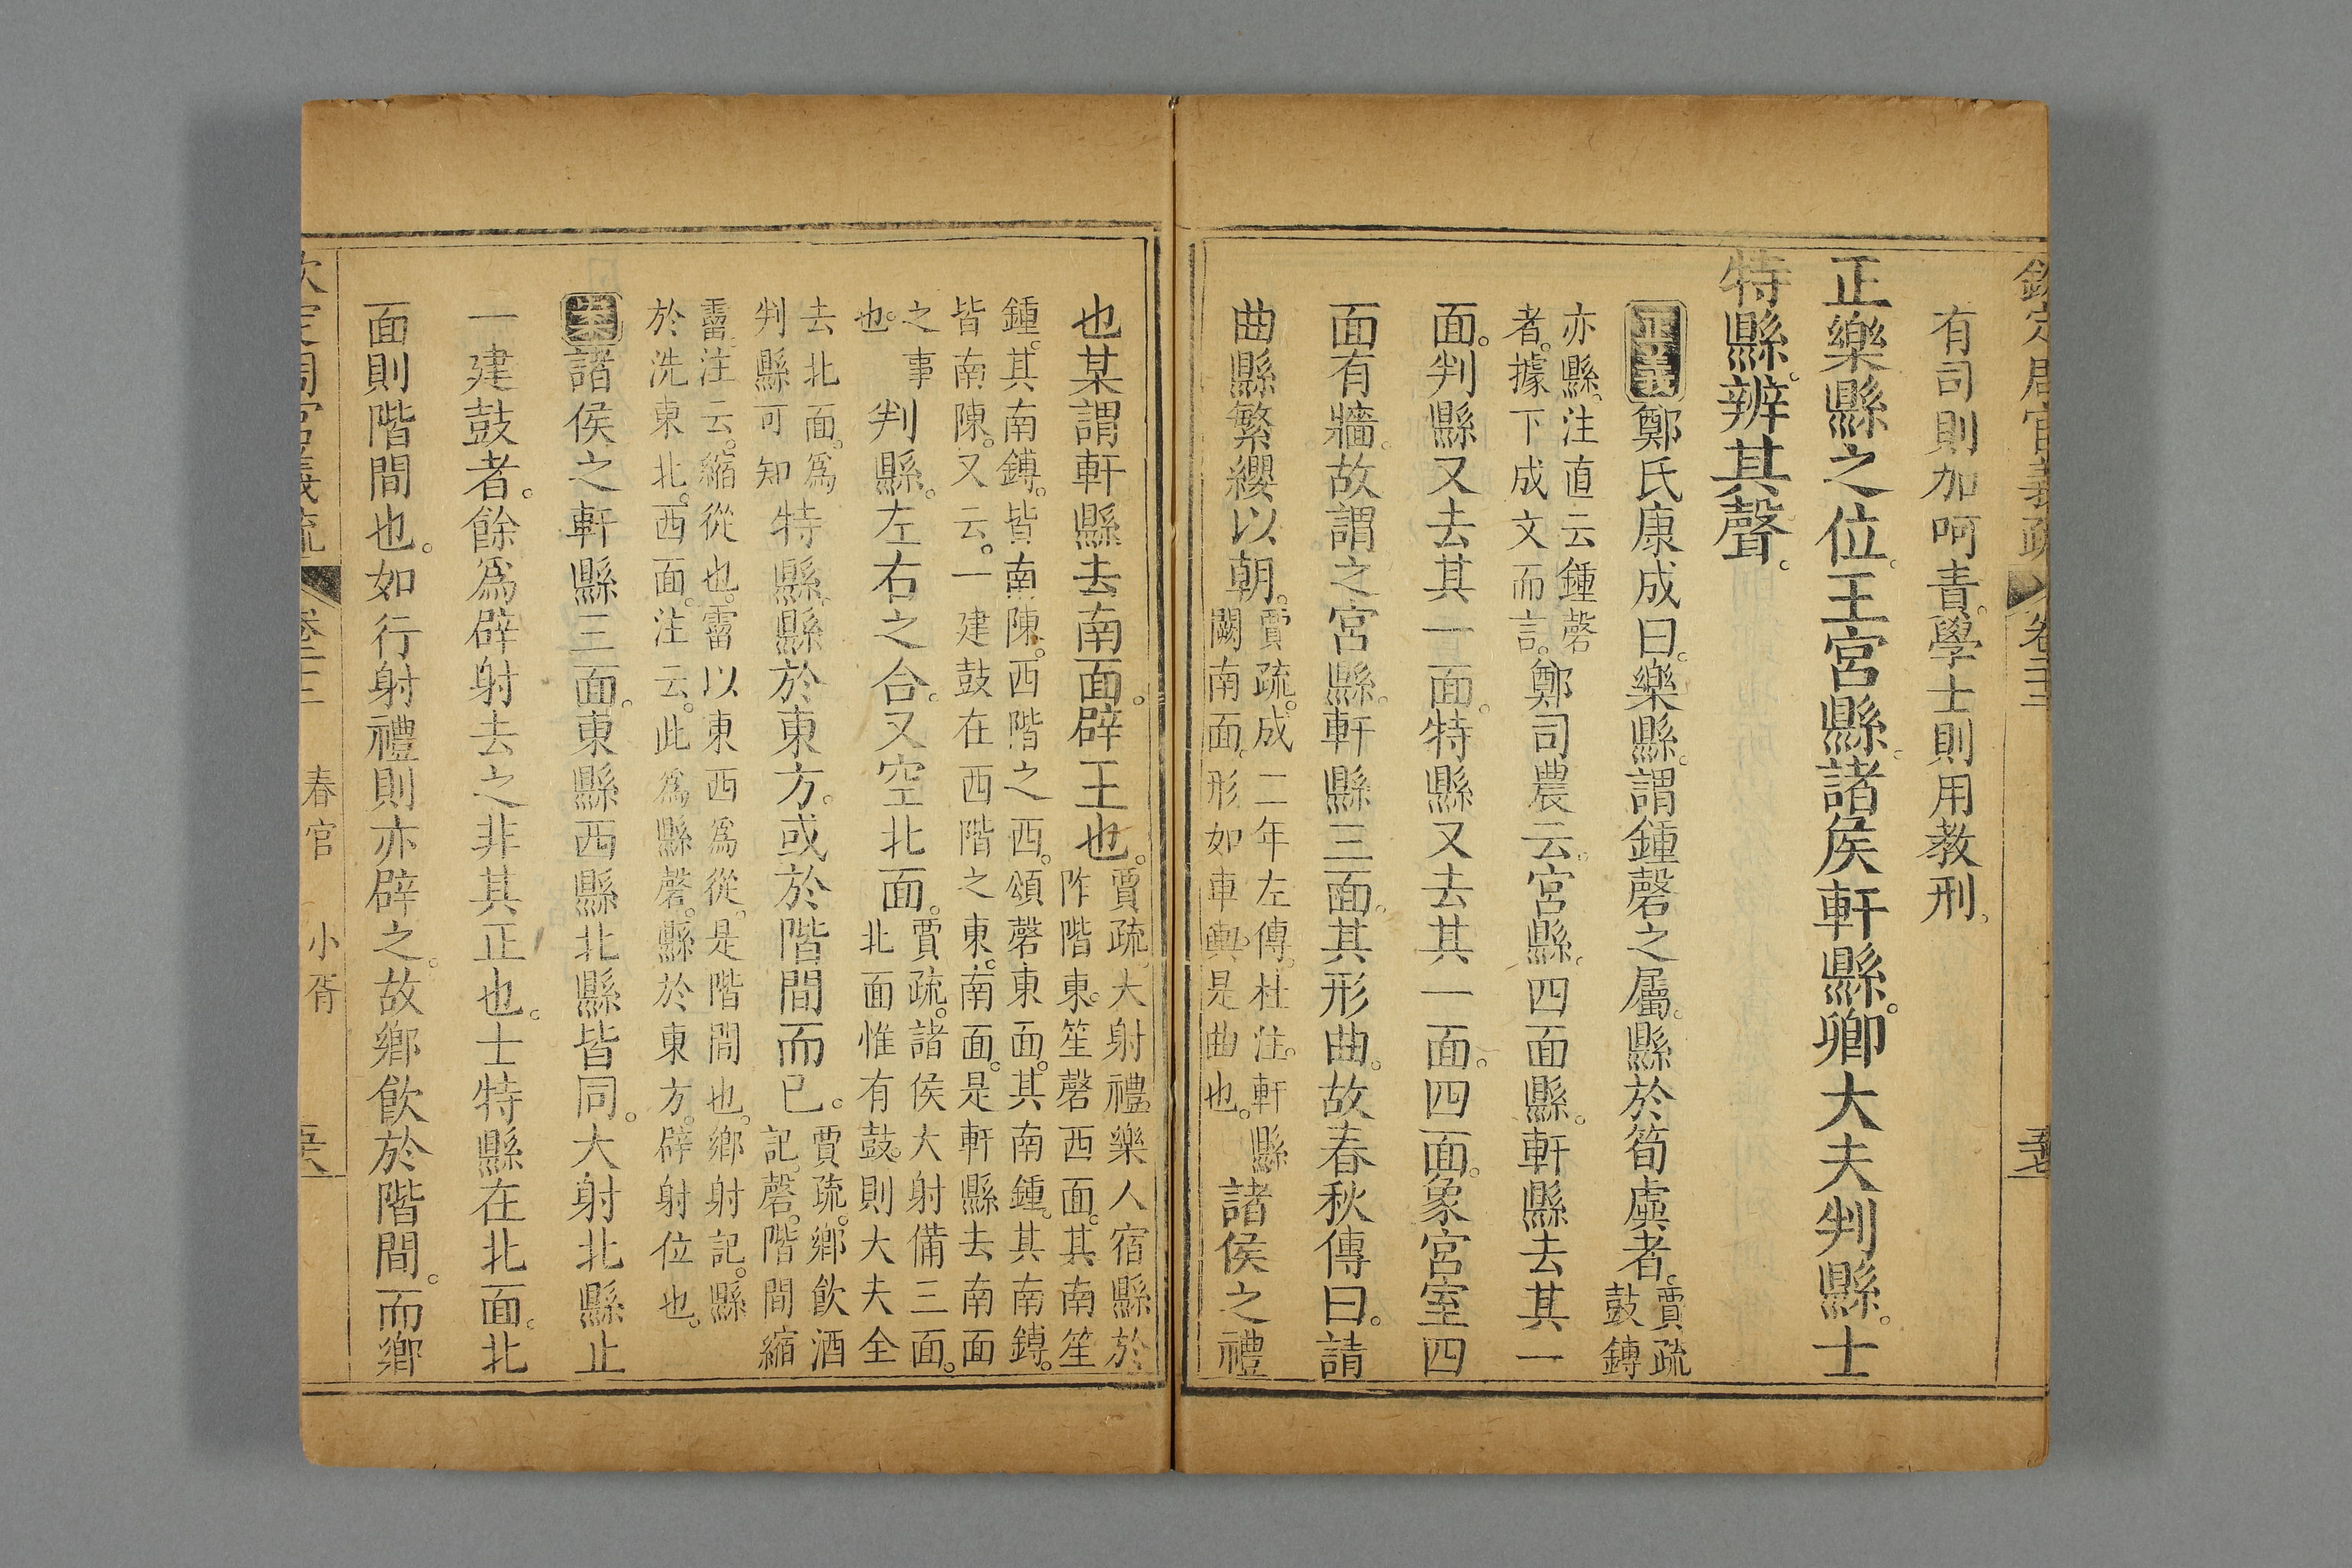 欽定周官義疏 卷二十三
有司則加呵責。學士則用教刑。
正樂縣之位。王宮縣。諸侯軒縣。卿大夫判縣。士
特縣。辨其聲。
正義 鄭氏康成曰。樂縣。謂鍾磬之屬。縣於筍虡者。賈疏
鼓鎛
亦縣。注直云鍾磬
者。據下成文而言。鄭司農云。宮縣。四面縣。軒縣去其一
面。判縣又去其一面。特縣又去其一面。四面。象宮室四
面有牆。故謂之宮縣。軒縣三面。其形曲。故春秋傳曰。請
曲縣繁纓以朝。賈疏。成二年左傳。杜注。軒縣
闕南面。形如車輿。是曲也。諸侯之禮
也某謂軒縣去南面。辟王也。賈疏。大射禮。樂人宿縣於
阼階東。笙磬西面。其南笙
鍾。其南鎛。皆南陳。西階之西。頌磬東面。其南鍾。其南鎛。
皆南陳。又云。一建鼓在西階之東。南面。是軒縣去南面
之事
也。判縣。左右之合。又空北面。賈疏。諸侯大射備三面。
北面惟有鼓。則大夫全
去北面。爲
判縣可知特縣。縣於東方。或於階間而已。賈疏。鄉飲酒
記。磬。階間縮
霤。注云。縮從也。霤以東西爲從。是階間也。鄉射記。縣
於洗東北。西面。注云。此爲縣磬。縣於東方。辟射位也。
諸侯之軒縣三面。東縣西縣北縣皆同。大射北縣止
一建鼓者。餘爲辟射去之。非其正也。士特縣在北面。北
面則階間也。如行射禮則亦辟之。故鄉飲於階間。而鄉
欽定周官義疏 卷二十三 春官 小胥